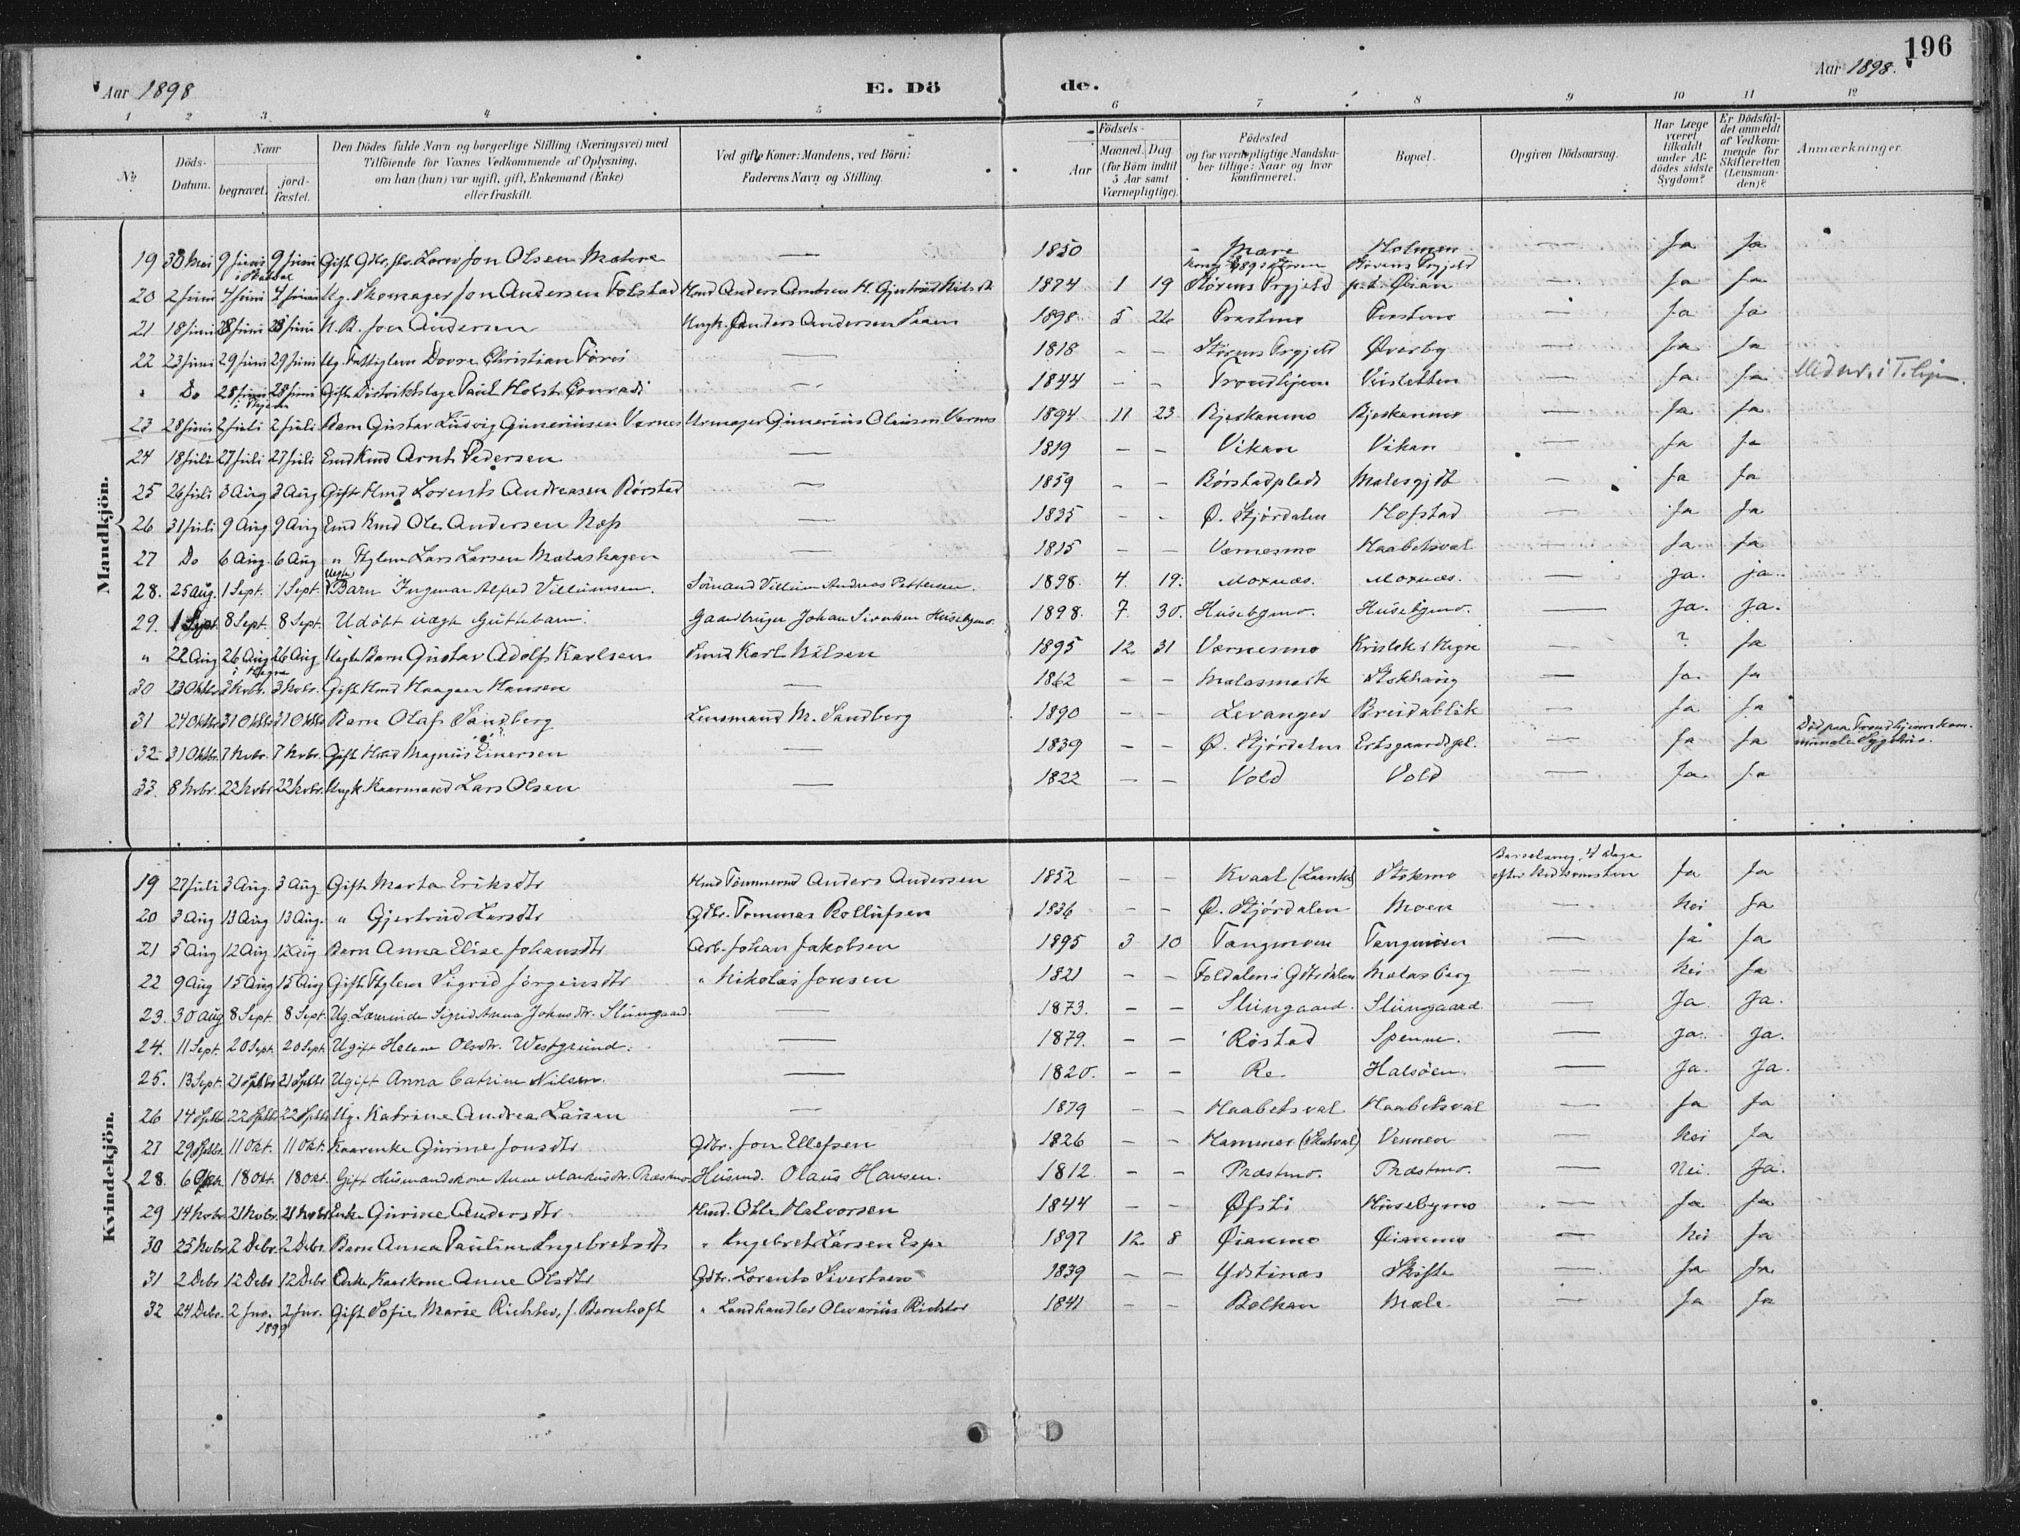 196
Aar 1898
E. Dö
de.
Aar 1898.
1 2 3 4 5 6 7 8 9 10 11 12
No
Döds-Datum.
Naar
begravet.
jord-fæstet.
Den Dödes fulde Navn og borgerlige Stilling (Næringsvei) med
Tilföiende for Voxnes Vedkommende af Oplysning,
om han (hun) var ugift, gift, Enkemand (Enke)
eller fraskilt.
Ved gifte Koner: Mandens, ved Börn:
Faderens Navn og Stilling.
Födsels-
Aar
Maaned. Dag
(for Börn indtil
5 Aar samt
Værnepligtige).
Födested
og for værnepligtige Mandska-
ber tillige: Naar og hvor
konfirmeret.
Bopæl.
Opgiven Dödsaarsag.
Har Læge
været
tilkaldt
under Af-
dödes sidste
Sygdom?
Er Dödsfal-
det anmeldt
af Vedkom-
mende for
Skifteretten
(Lensman-
den)?
Anmærkninger.
Mandkjön.
19 9 Juni 9 Juni Gift Jon Olsen — 1850 Mære Holmen — Ja Ja
20 2 Juni 4 Juni 4 Juni Ug. Skomager Jon Andersen Folstad 1874 1 19 Størens Prgjeld p.t. Øian — Ja Ja
21 18 Juni 28 Juni 28 Juni Jon Andersen Ungk. Anders Andersen 1898 5 26 Præstmo Præstmo — Ja Ja
22 23 Juni 29 Juni 29 Juni Ug. Dovre Christian — 1818 — — Størens Prgjeld Øverby — Ja Ja
" Do 28 Juni 28 Juni Gift Distriktslæge Paul Holst Conradi — 1844 — — Trondhjem — Ja Ja
23 28 Juni 2 Juli 2 Juli Barn Gustav Ludvig Guneriussen Værnes Urmager Gunerius Olaisen Værnes 1894 11 23 Bjerkanmo Bjerkanmo — Ja Ja
24 18 Juli 27 Juli 27 Juli Emd Kmd Arnt Pedersen — 1819 — — Vikan Vikan — Ja Ja
25 26 Juli 3 Aug 3 Aug Gift Hmd Lorents Andreasen Rørstad — 1859 — — — Ja Ja
26 31 Juli 9 Aug 9 Aug Emd Kmd Ole Andersen Næss — 1835 — — Ø. Stjørdalen Hofstad — Ja Ja
27 Do 6 Aug 6 Aug " Lars Larsen Mælashagen — 1815 — — Værnesmo Haabetsval — Ja Ja
28. 25 Aug. 1 Sept. 1 Sept. Uægte Barn Ingmar Alfred Villumsen. Sömand Villum Andreas Pettersen. 1898. 4. 19. Moxnæs. Moxnæs. — Ja. ja.
29. 1 Sept. 8 Sept. 8 Sept. Udöbt uægte Guttebarn. Gaardbruger Johan Sivertsen Husebymo. 1898. 7. 30. Husebymo. Husebymo. — Ja. Ja.
" 22 Aug 26 Aug 26 Aug i Hegre Uægte Barn Gustav Adolf Karlsen Smed Karl Nilsen 1895 12 31 Værnesmo i Hegre — ? Ja
30 23 Oktbr. 3 Novbr. 3 Novbr. Gift Hmd Haagen Hansen — 1862 — — Mælasmark Stokhaug — Ja Ja
31 24 Oktbr 31 Oktbr 31 Oktbr Barn Olaf Sandberg Lensmand M. Sandberg 1890 — — Levanger Breidablik — Ja Ja
32 31 Oktbr. 7 Novbr. 7 Novbr. Gift Hmd Magnus Einersen — 1839 — — Ø. Stjørdalen Ertsgaardspl. — Ja Ja Död paa Trondhjems Kom-
munale Sygehus.
33. 8 Novbr. 22 Novbr 22 Novbr. Ungk. Kaarmand Lars Olsen — 1822 — — Vold Vold — Ja Ja
Kvindekjön.
19 27 Juli 3 Aug. 3 Aug Gift Marta Eriksdtr Anders Andersen 1852 — — Kvaal Stokmo Barselseng, 4 Dage
efter Nedkomsten Ja Ja
20 3 Aug 13 Aug 13 Aug. " Gjertrud Larsdtr Gdbr. Tommas Rollufsen 1836 — — Ø. Stjørdalen Moen — Nei Ja
21 5 Aug 12 Aug 12 Aug Barn Anna Elise Johansdtr Arb. Johan Jakobsen 1895 3 10 Tangmoen Tangmoen — Ja Ja
22 9 Aug 15 Aug 15 Aug Gift Sigrid Jörgensdtr " Nikolai Jonsen 1821 — — Mælasberg — Nei Ja
23. 30 Aug 8 Sept. 8 Sept. Ug. Lærerinde Sigrid Anna Johnsdtr. Slungaard. — 1873. — — Slungaard. Slungaard. — Ja Ja.
24. 11 Sept. 20 Sept. 20 Sept. Ugift Helene Olsdtr. Westgrund. — 1879. — — Röstad Spenne. — Ja. Ja.
25. 13 Sept. 21 Septbr 21 Septbr Ugift Anna Catrine Nilsen. — 1820. — — Re Halsöen. — Ja. Ja.
26 14 Septbr 22 Septbr 22 Septbr Ug. Katrine Andrea Larsen — 1879 — — Haabetsval Haabetsval — Ja Ja
27 29 Septbr. 11 Okt. 11 Okt. Kaarenke Gurine Jonsdtr Gdbr. Jon Ellefsen 1826 — — Hammer (Skatval) Vennen — Nei Ja
28. 6 Okt. 18 Okt. 18 Okt. Gift Husmandskone Anne Markusdtr. Præstmo Husmd. Olaus Hansen. 1812. — — Præstmo. Præstmo. — Nei. Ja.
29 14 Novbr 21 Novbr. 21 Novbr Enke Gurine Andersdtr Hmd. Ole Halvorsen 1844 — — Øfsti Husebymo — Ja Ja
30 25 Novbr 2 Debr. 2 Debr. Barn Anna Pauline Engebretsdtr " Engebret Larsen Espe 1897 12 8 Øianmo Øianmo — Nei Ja
31 2 Debr 12 Debr 12 Debr Enke Kaarkone Anne Olsdtr Gdbr. Lorents Sivertsen 1839 — — Ydstinæs Skifte — Ja Ja
32 24 Debr. 2 Jnr. 1899 2 Jnr. Gift Sofie Marie Richter, f. Bernhoft " Landhandler Olivarius Richter 1841 — — Balhan Mæle — Ja Ja